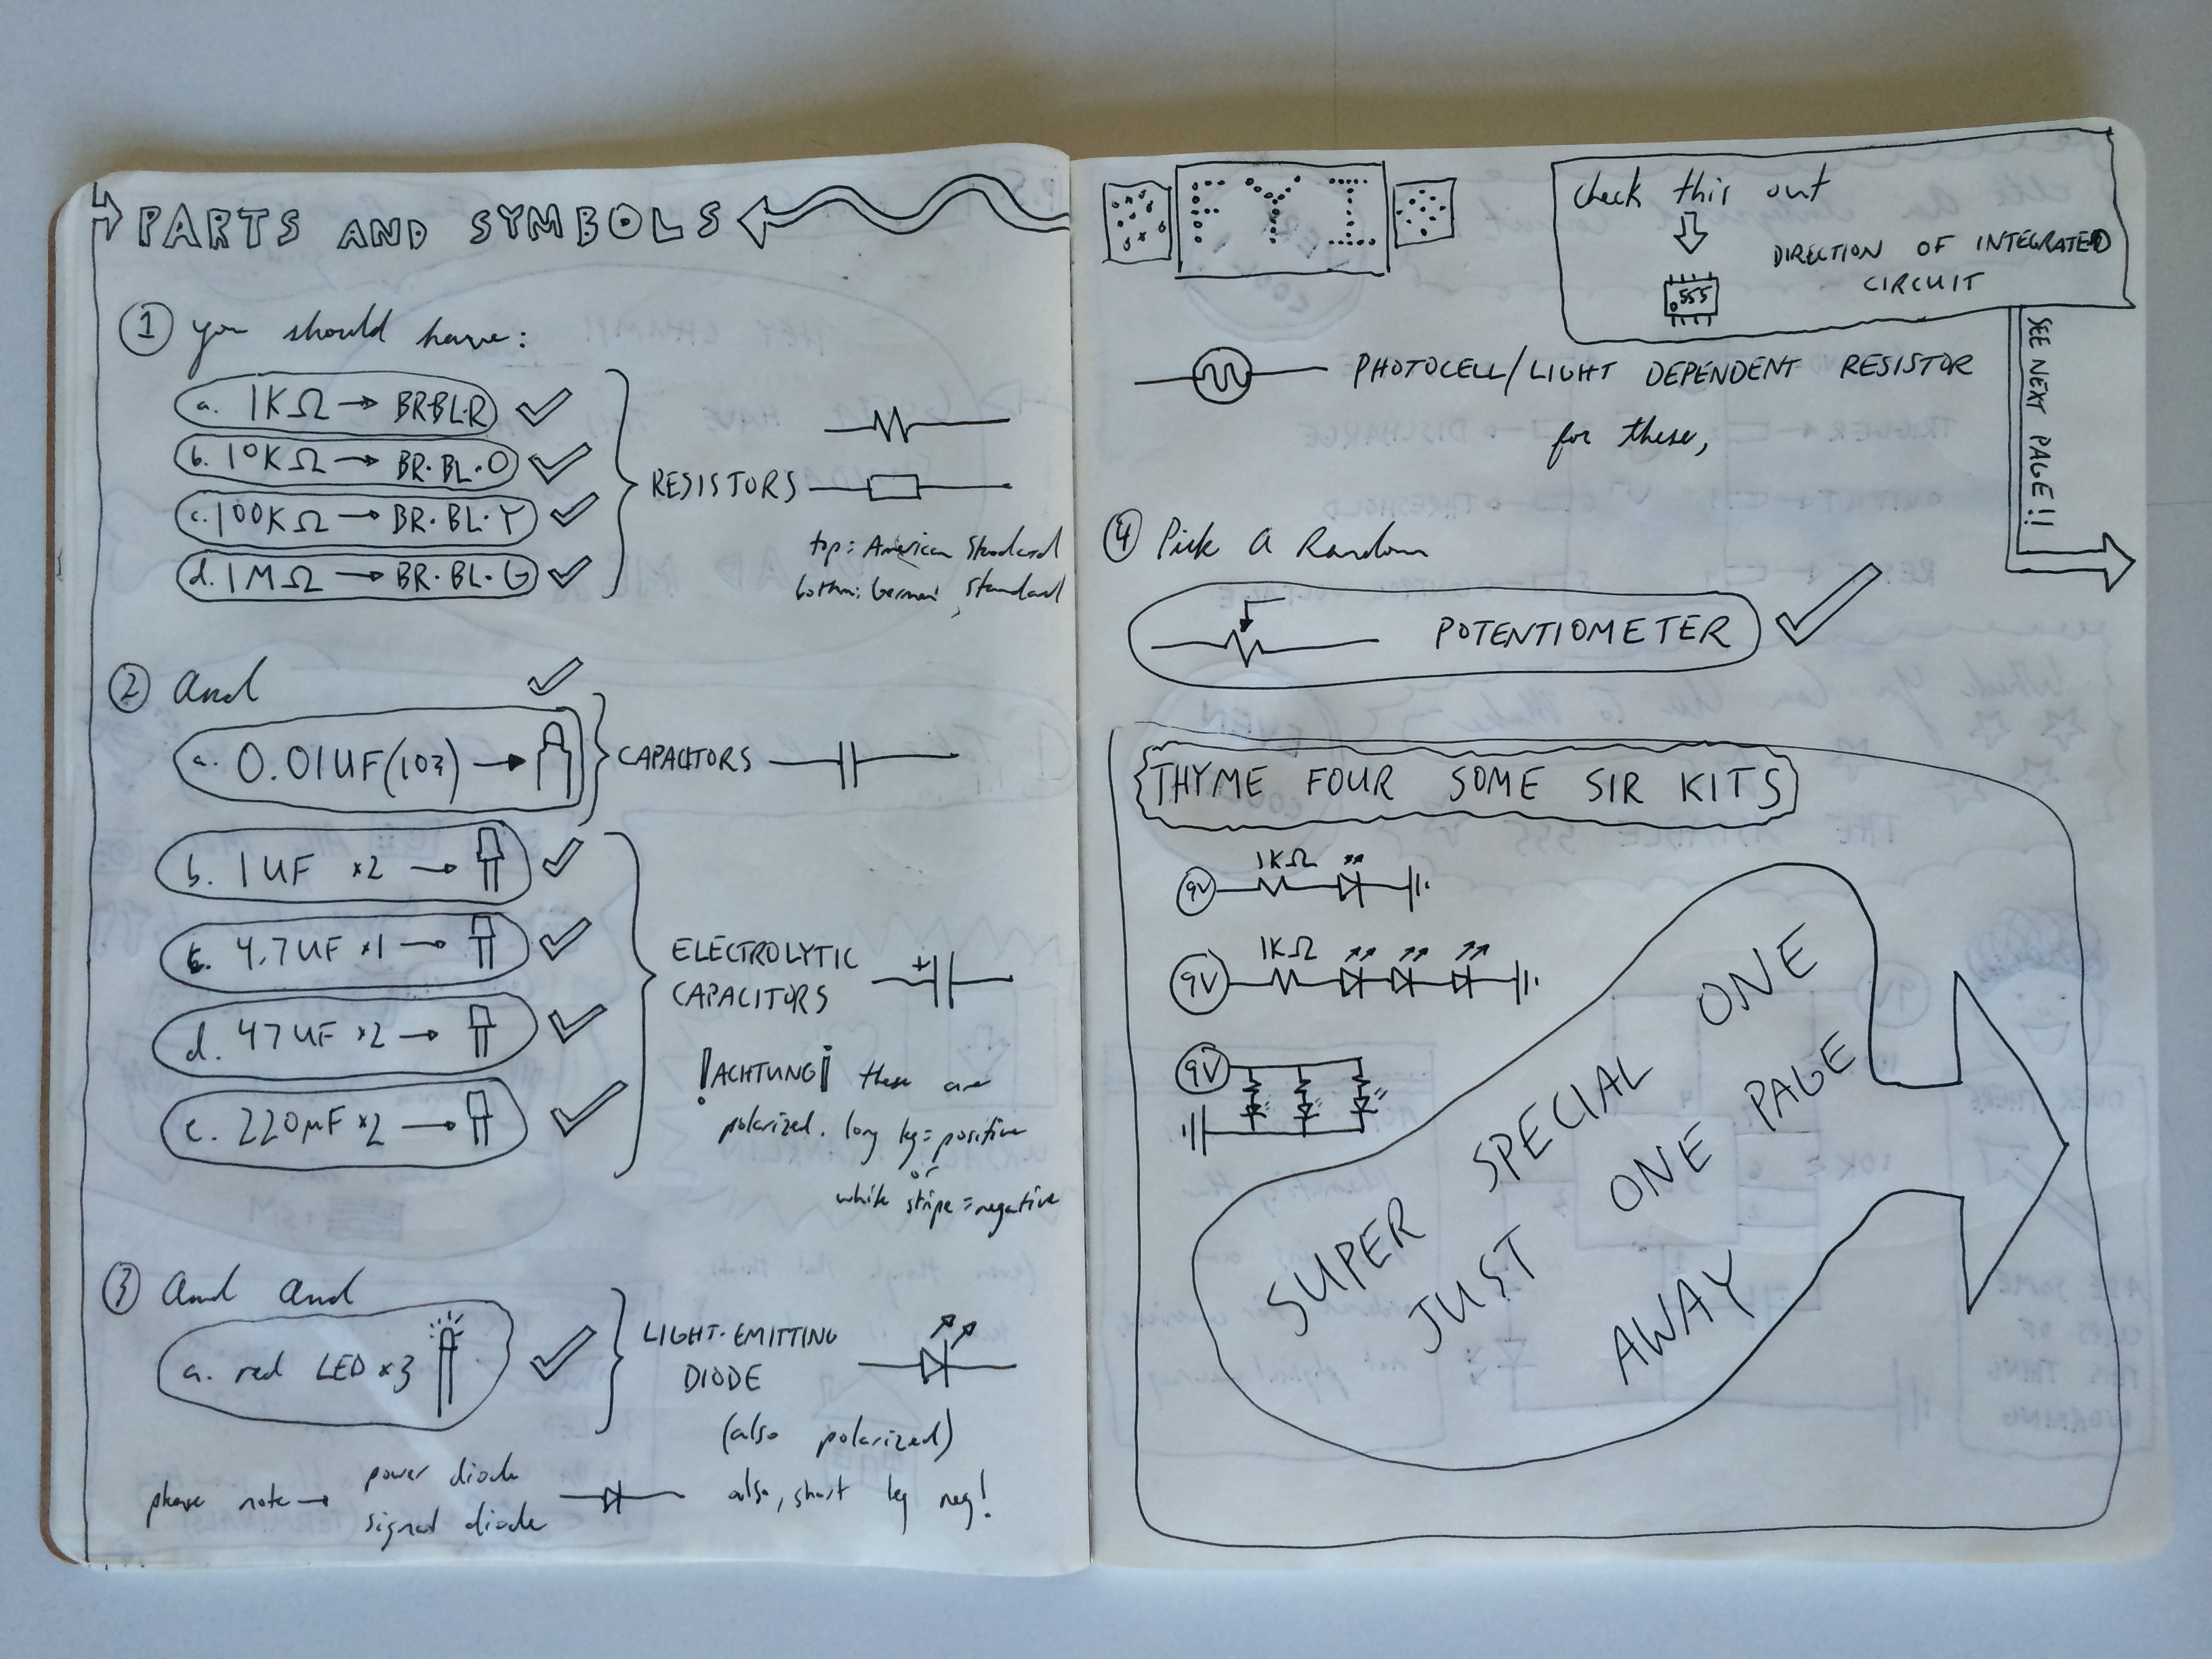 PARTS AND SYMBOLS
1 you should have:
a. 1KΩ → BR·BL·R
b. 10KΩ → BR·BL·O
c. 100KΩ → BR·BL·Y
d. 1MΩ → BR·BL·G
RESISTORS
top: American Standard
bottom: German Standard
2 And
a. 0.01UF(103) →
CAPACITORS
b. 1UF x2 →
c. 4.7UF x1 →
d. 47UF x2 →
e. 220µF x2 →
ELECTROLYTIC
CAPACITORS
+
!ACHTUNG! these are
polarized. long leg = positive
or
white stripe = negative
3 And and
a. red LED x3
LIGHT-EMITTING
DIODE
(also polarized)
also, short leg neg!
please note → power diode
signal diode
FYI
check this out
555
DIRECTION OF INTEGRATED
CIRCUIT
SEE NEXT PAGE!!
PHOTOCELL/LIGHT DEPENDENT RESISTOR
for these,
4 Pick A Random
POTENTIOMETER
THYME FOUR SOME SIR KITS
9V 1KΩ
9V 1KΩ
9V
SUPER SPECIAL ONE
JUST ONE PAGE
AWAY